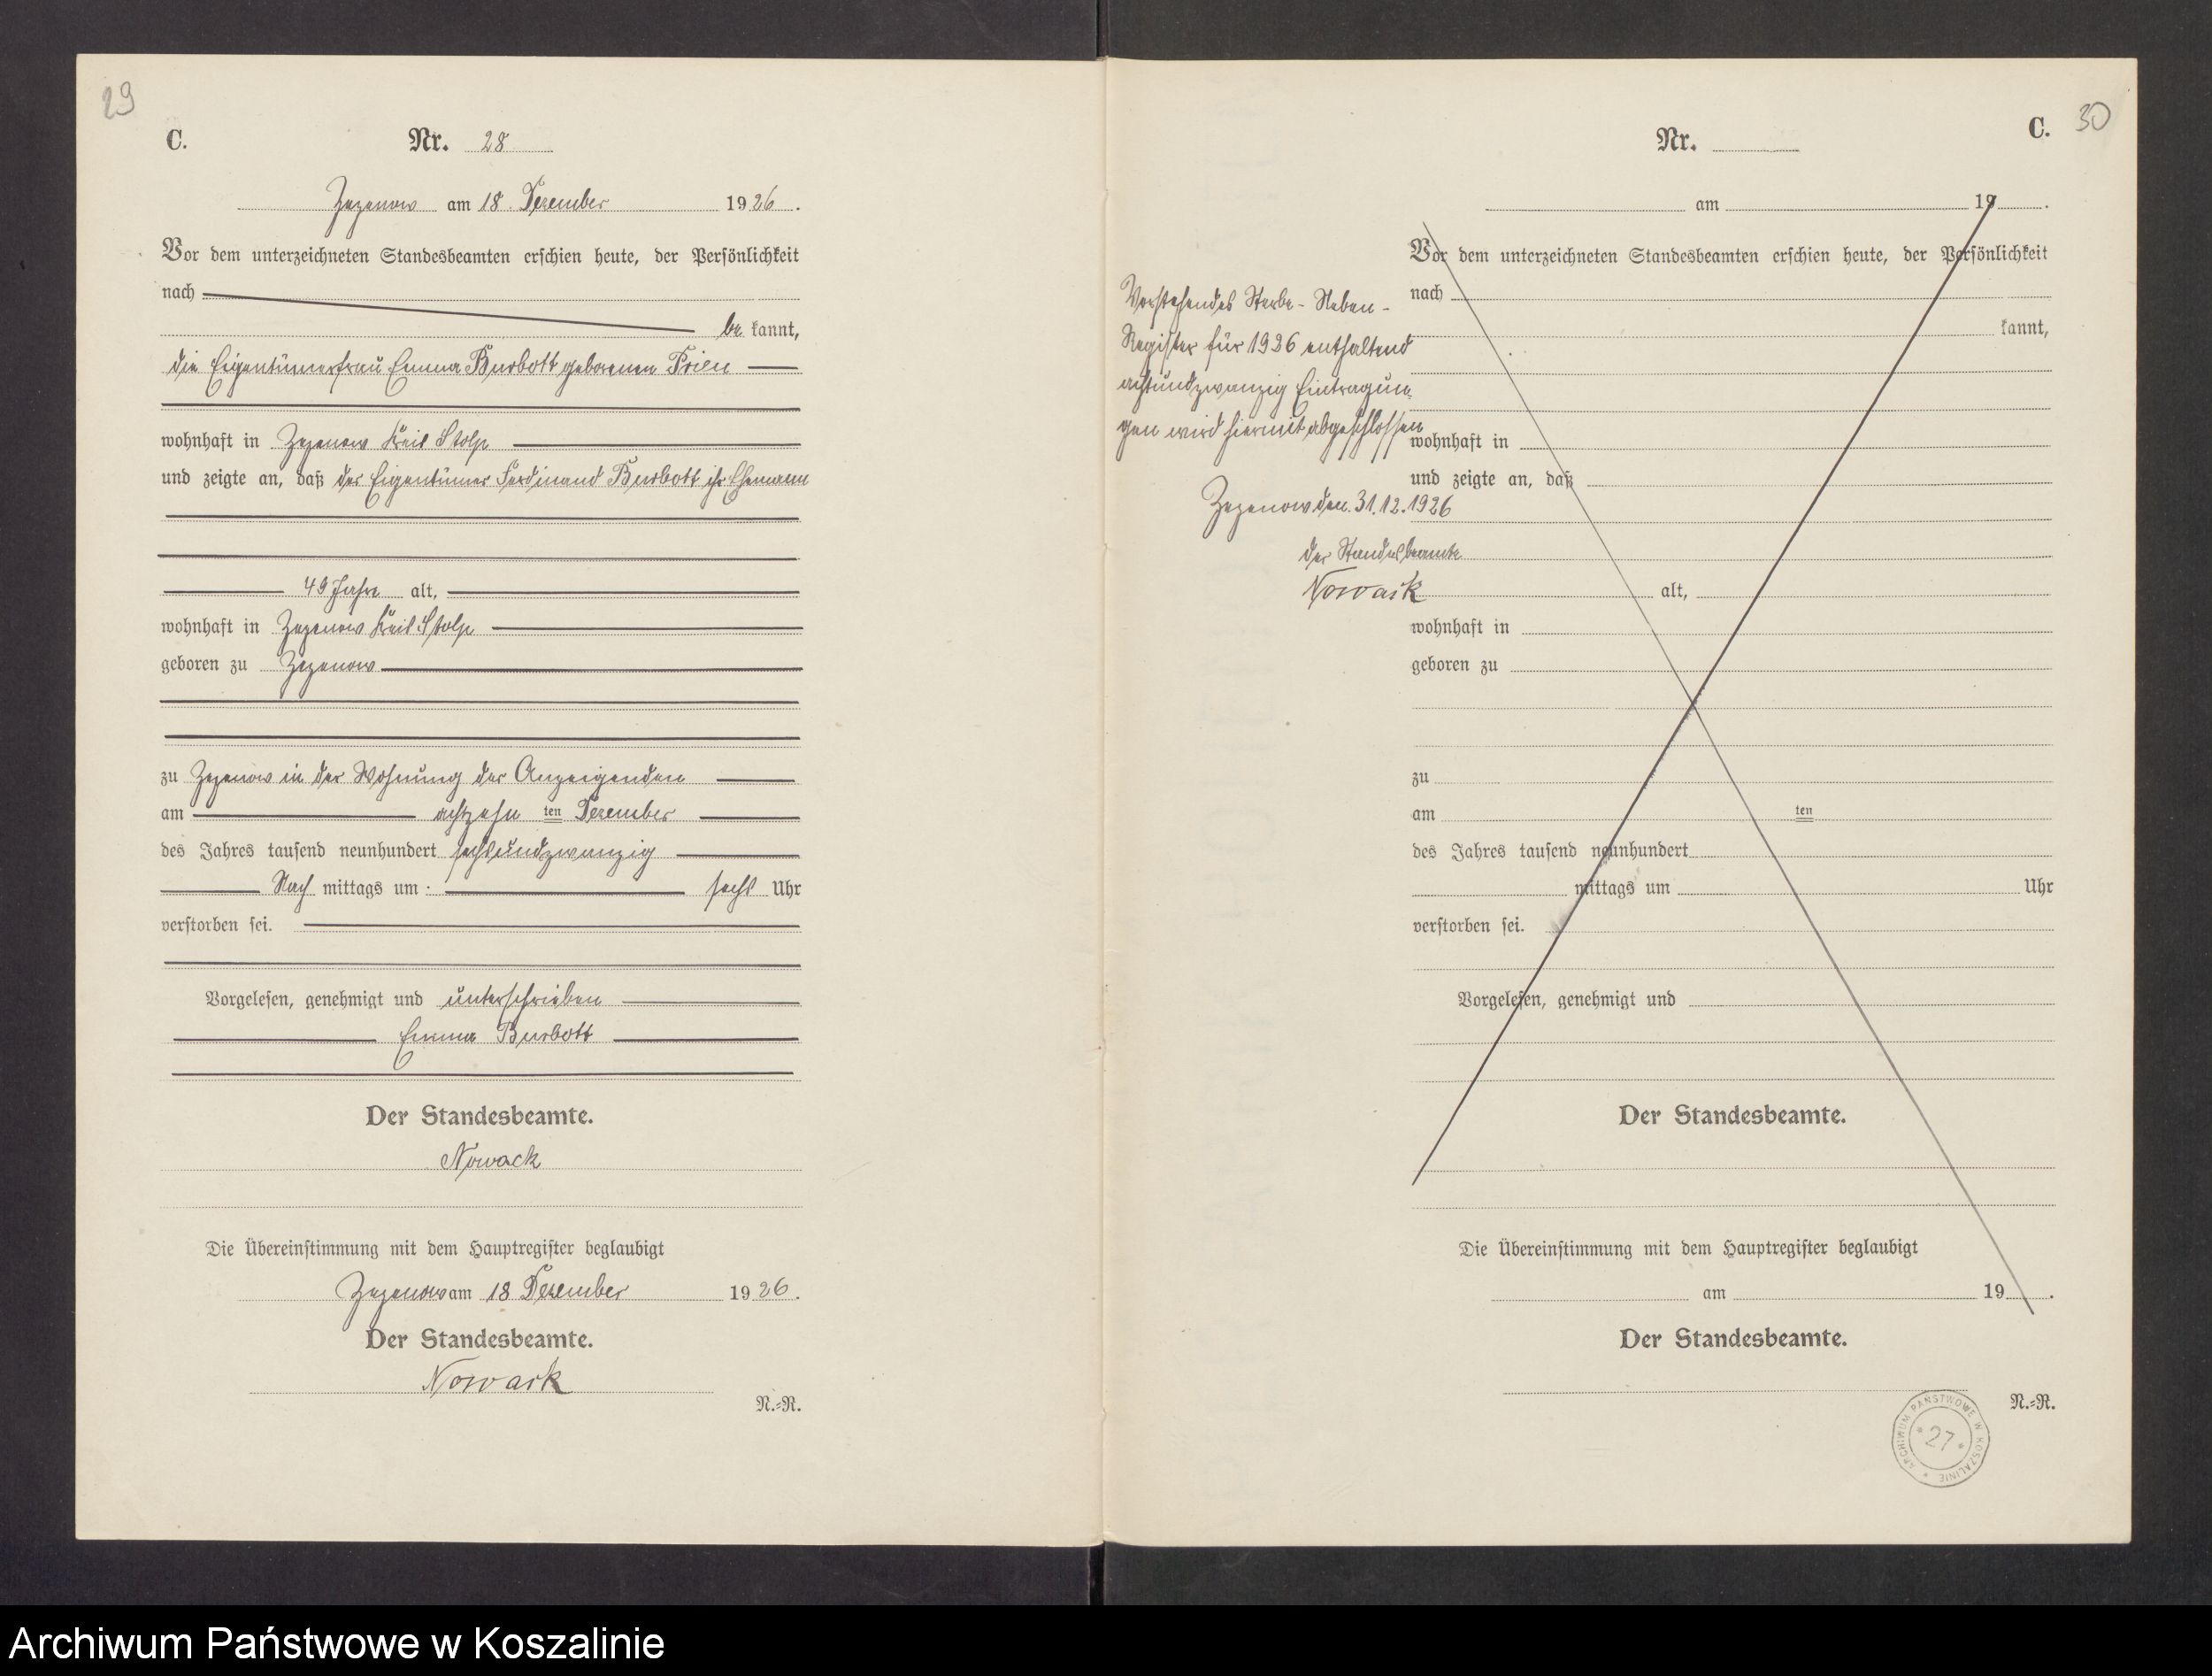 29
C.
Nr. 28
Zezenow am 18. Dezember 1926.
Vor dem unterzeichneten Standesbeamten erschien heute, der Persönlichkeit
nach
be kannt,
die Eigentümerfrau Emma Burbott geborenen Prien
wohnhaft in Zezenow Kreis Stolp
und zeigte an, daß der Eigentümer Ferdinand Burbott ihr Ehemann
49 Jahre alt,
wohnhaft in Zezenow Kreis Stolp
geboren zu Zezenow
zu Zezenow in der Wohnung der Anzeigenden
am achtzehn ten Dezember
des Jahres tausend neunhundert sechsundzwanzig
Nach mittags um sechs Uhr
verstorben sei.
Vorgelesen, genehmigt und unterschrieben
Emma Burbott
Der Standesbeamte.
Nowack
Die Übereinstimmung mit dem Hauptregister beglaubigt
Zezenow am 18 Dezember 1926.
Der Standesbeamte.
Nowack
N.=R.
C. 30
Nr.
am 19 .
Vor dem unterzeichneten Standesbeamten erschien heute, der Persönlichkeit
nach
kannt,
wohnhaft in
und zeigte an, daß
alt,
wohnhaft in
geboren zu
zu
am ten
des Jahres tausend neunhundert
mittags um Uhr
verstorben sei.
Vorgelesen, genehmigt und
Der Standesbeamte.
Die Übereinstimmung mit dem Hauptregister beglaubigt
am 19 .
Der Standesbeamte.
N.=R.
Vorstehendes Sterbe-Neben-
Register für 1926 enthaltend
achtundzwanzig Eintragun-
gen wird hiermit abgeschlossen
Zezenow den 31.12.1926
der Standesbeamte
Nowack
ARCHIWUM PAŃSTWOWE W KOSZALINIE
* 27 *
Archiwum Państwowe w Koszalinie